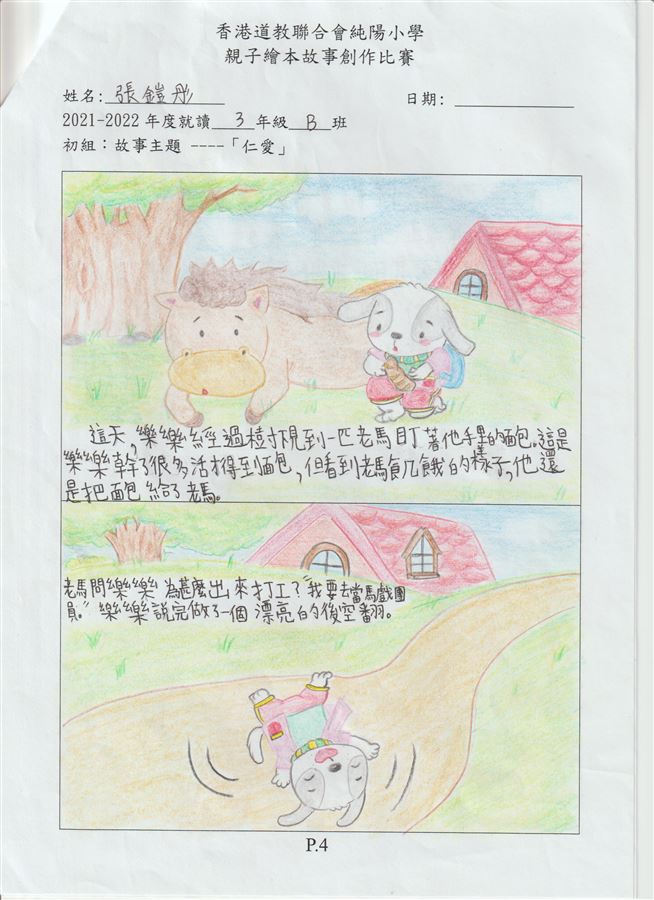 香港道教聯合會純陽小學
親子繪本故事創作比賽
姓名: 張鎧彤 日期:
2021-2022 年度就讀 3 年級 B 班
初組：故事主題 ----「仁愛」
這天，樂樂經過樹下見到一匹老馬盯著他手里的麵包。這是
樂樂幹了很多活才得到麵包，但看到老馬飢餓的樣子，他還
是把麵包給了老馬。
老馬問樂樂為甚麼出來打工？“我要去當馬戲團
員。”樂樂說完做了一個漂亮的後空翻。
P.4